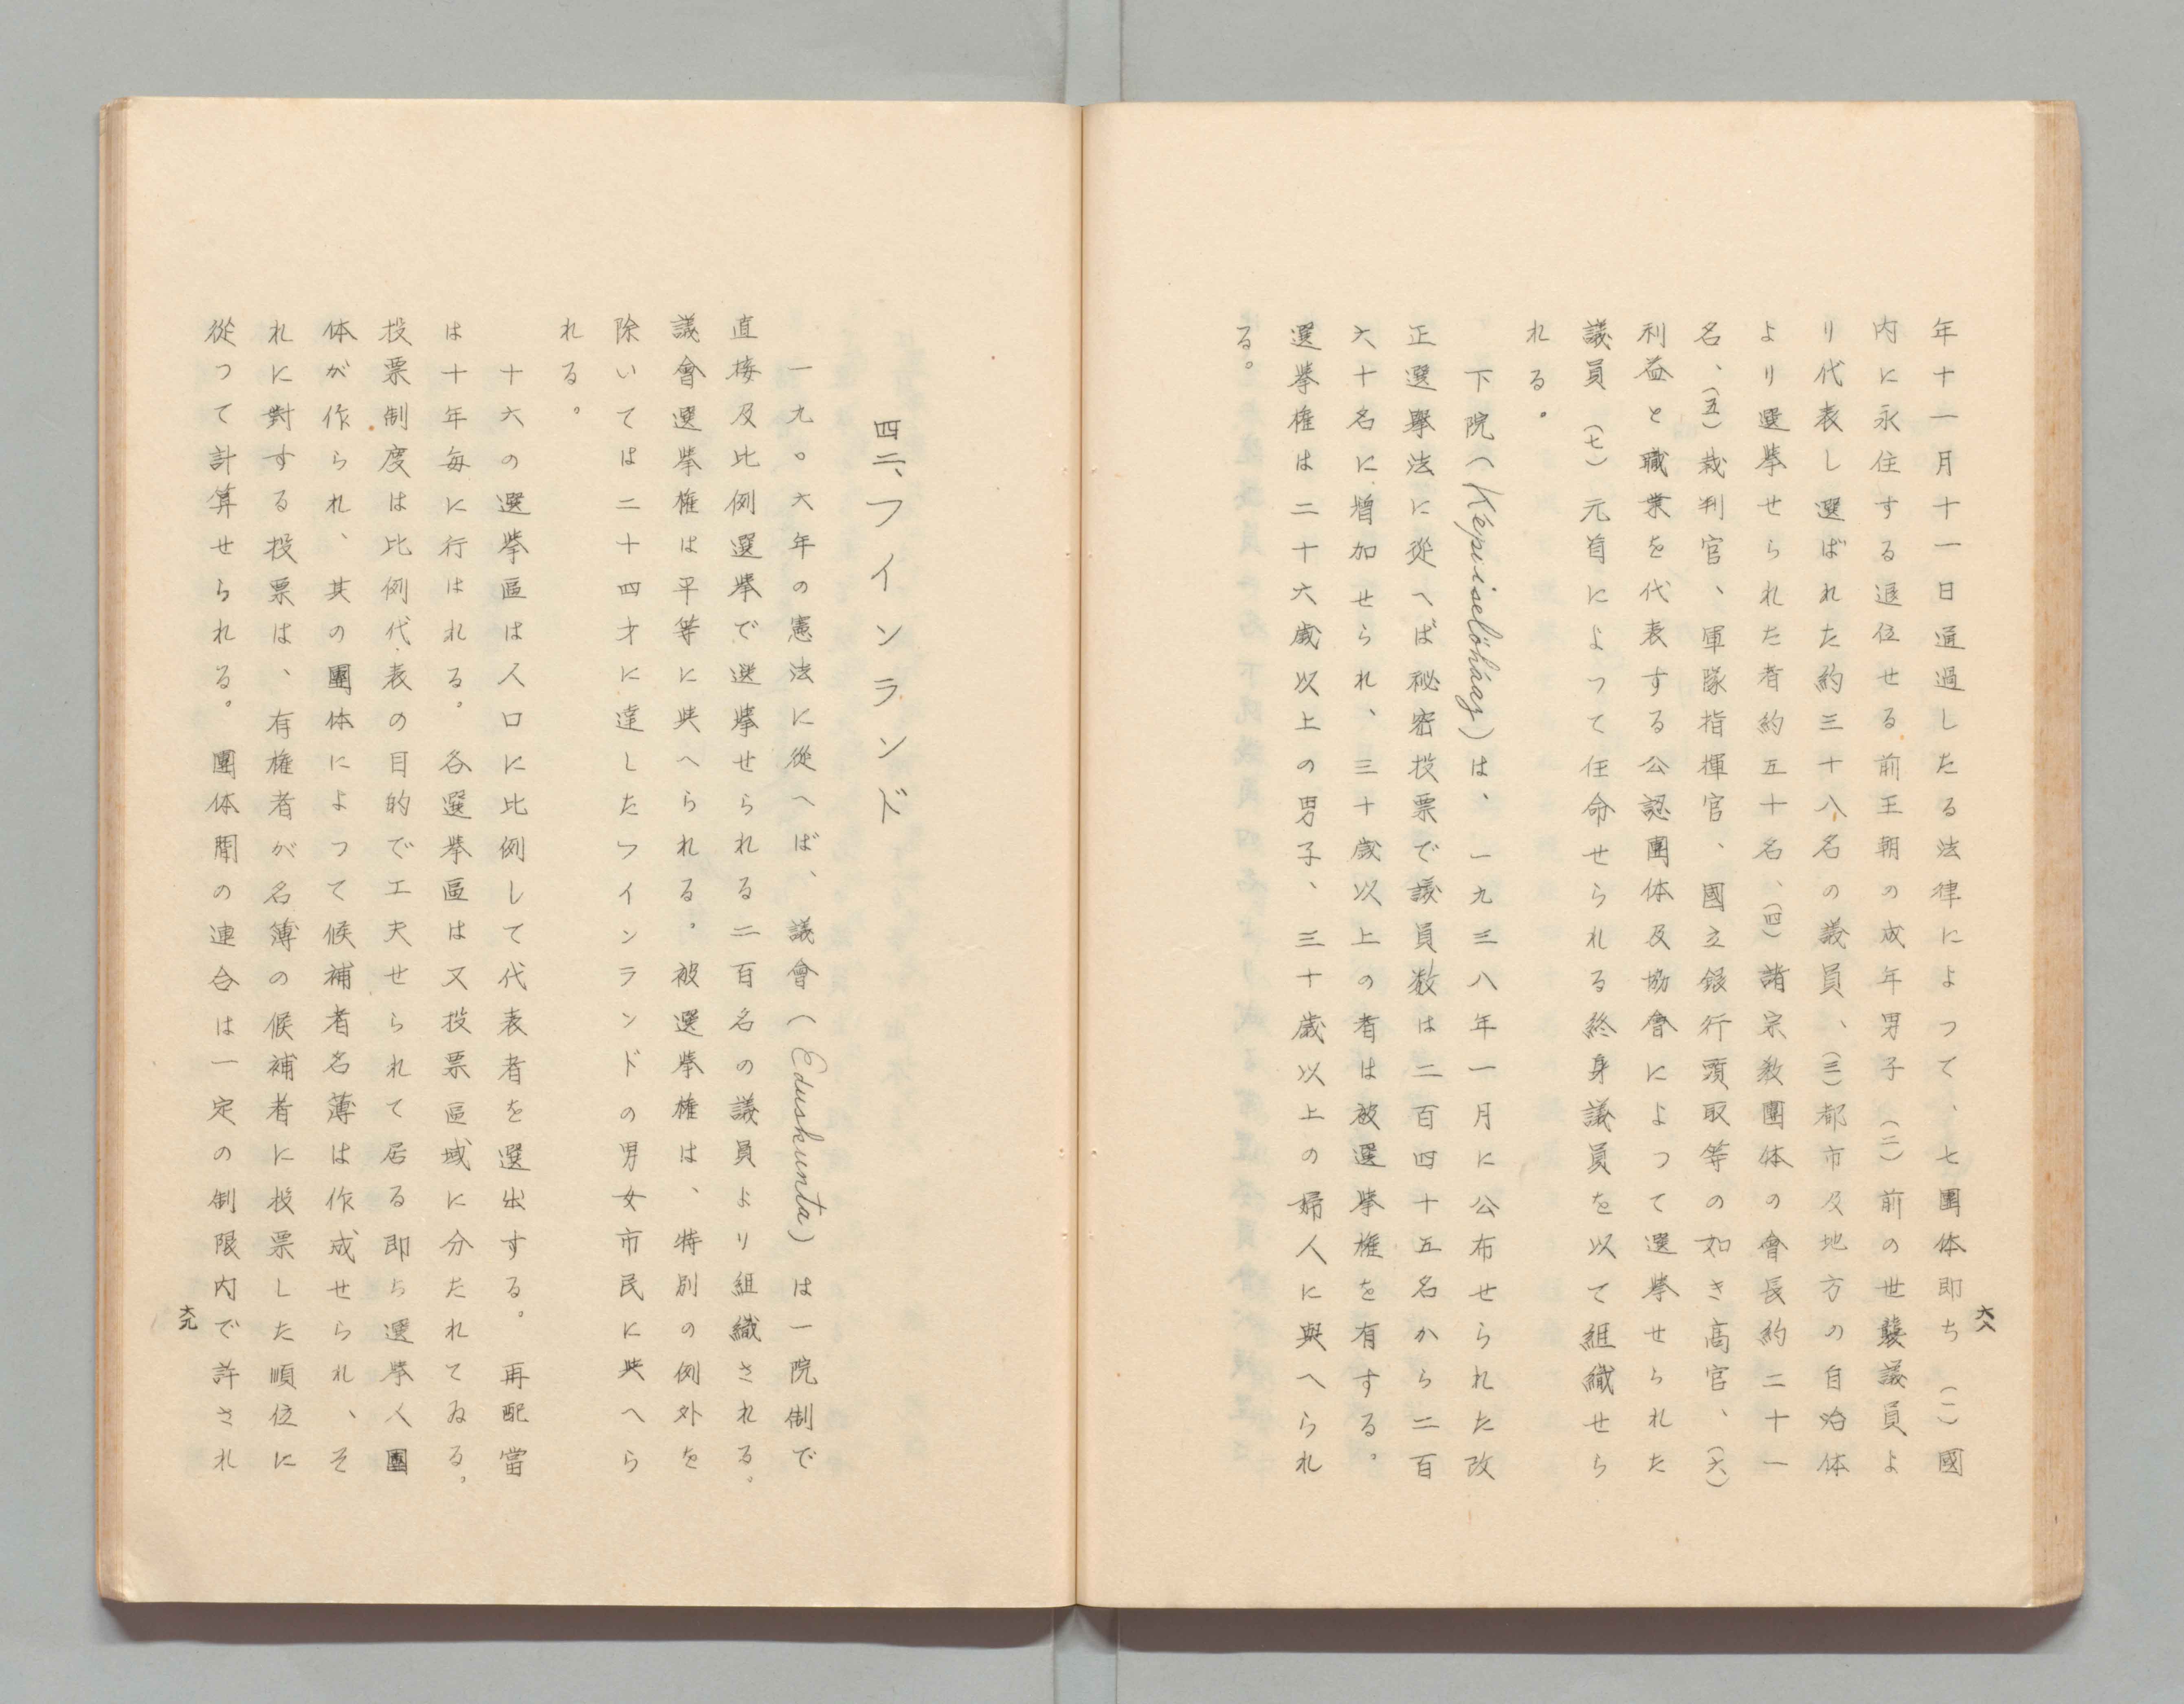 年十一月十一日通過したる法律によつて、七團体即ち（一）國
内に永住する退位せる前王朝の成年男子（二）前の世襲議員よ
り代表し選ばれた約三十八名の議員、（三）都市及地方の自治体
より選挙せられた者約五十名、（四）諸宗教團体の會長約二十一
名、（五）裁判官、軍隊指揮官、國立銀行頭取等の如き高官、（六）
利益と職業を代表する公認團体及協會によつて選挙せられた
議員（七）元首によつて任命せられる終身議員を以て組織せら
れる。
下院（Képviselöház）は、一九三八年一月に公布せられた改
正選擧法に從へば秘密投票で議員数は二百四十五名から二百
六十名に増加せられ、三十歳以上の者は被選挙権を有する。
選挙権は二十六歳以上の男子、三十歳以上の婦人に與へられ
る。
六八
四二、フインランド
一九〇六年の憲法に從へば、議會（Eduskunta）は一院制で
直接及比例選挙で選挙せられる二百名の議員より組織される。
議會選挙権は平等に與へられる。被選挙権は、特別の例外を
除いては二十四才に達したフインランドの男女市民に與へら
れる。
十六の選挙區は人口に比例して代表者を選出する。再配當
は十年毎に行はれる。各選挙區は又投票區域に分たれてゐる。
投票制度は比例代表の目的で工夫せられて居る即ち選挙人團
体が作られ、其の團体によつて候補者名薄は作成せられ、そ
れに對する投票は、有権者が名簿の候補者に投票した順位に
從つて計算せられる。團体間の連合は一定の制限内で許され
六九